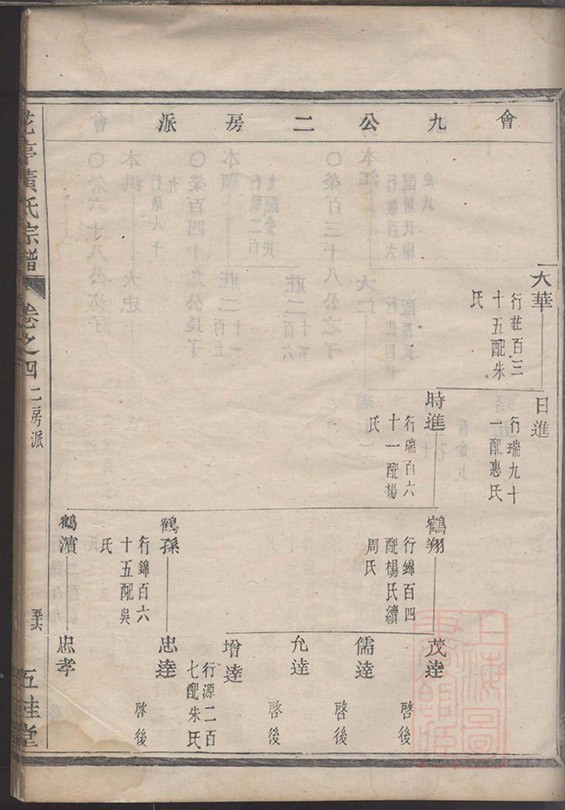 會九公二房派
大華
行莊百三
十五配朱
氏
日進
行瑞九十
一配惠氏
時進
行瑞百六
十一配楊
氏
鶴翔
行錦百四
配楊氏續
周氏
茂達
啓後
儒達
啓後
允達
啓後
增達
行源二百
七配朱氏
鶴孫
行錦百六
十五配吳
氏
忠達
啓後
鶴濱
忠孝
花亭黃氏宗譜
卷之四
二房派
五桂堂
上海圖書館藏